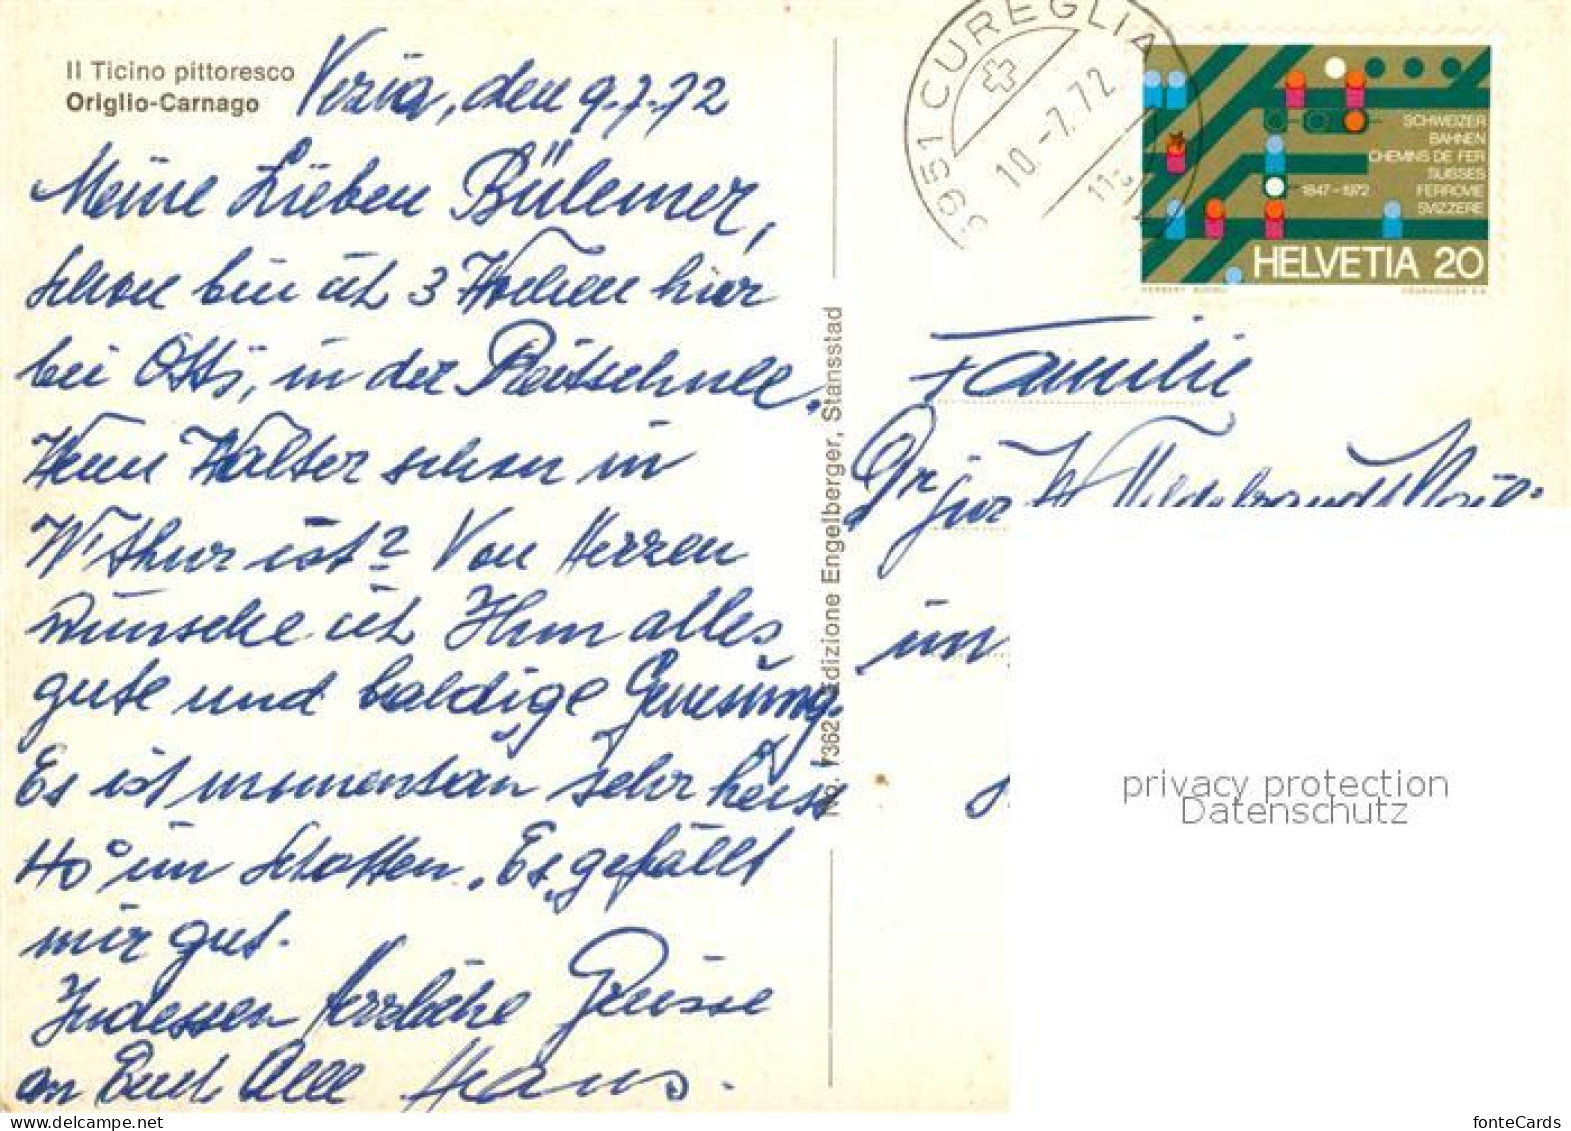 Il Ticino pittoresco
Origlio-Carnago
Vezia, den 9.7.72
Meine Lieben Bülemer,
schon bin ich 3 Wochen hier
bei Otts, in der Reitschule.
Wenn Walter schon in
W'thur ist? Von Herzen
wünsche ich Ihm alles
gute und baldige Genesung.
Es ist momentan sehr heiss
40° im Schatten. Es gefällt
mir gut.
Indessen herzliche Grüsse
an Euch Alle Hans.
No. 7362 Edizione Engelberger, Stansstad
6951 CUREGLIA
10.-7.72
11
SCHWEIZER
BAHNEN
CHEMINS DE FER
SUISSES
FERROVIE
SVIZZERE
1847-1972
HELVETIA 20
Familie
Dr jur W Hildebrandt
im
privacy protection
Datenschutz
fonteCards